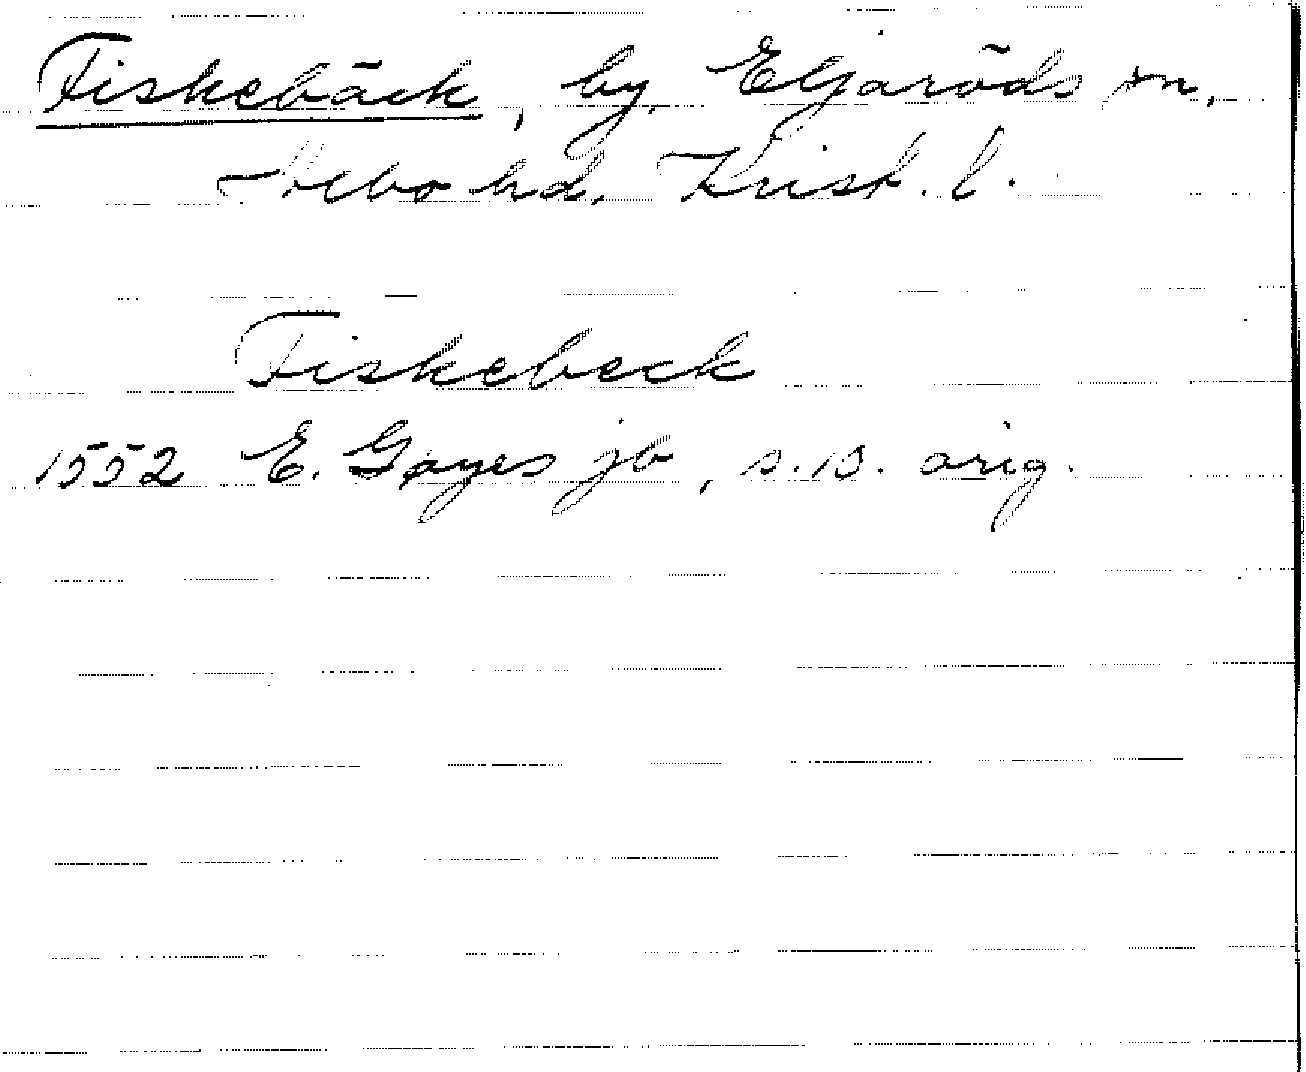 Fiskebäck, by, Eljaröds sn,
Ingelstads hd. Krist. l.
Fiskebeck
1552 E. Gøyes jb, s. 13. orig.